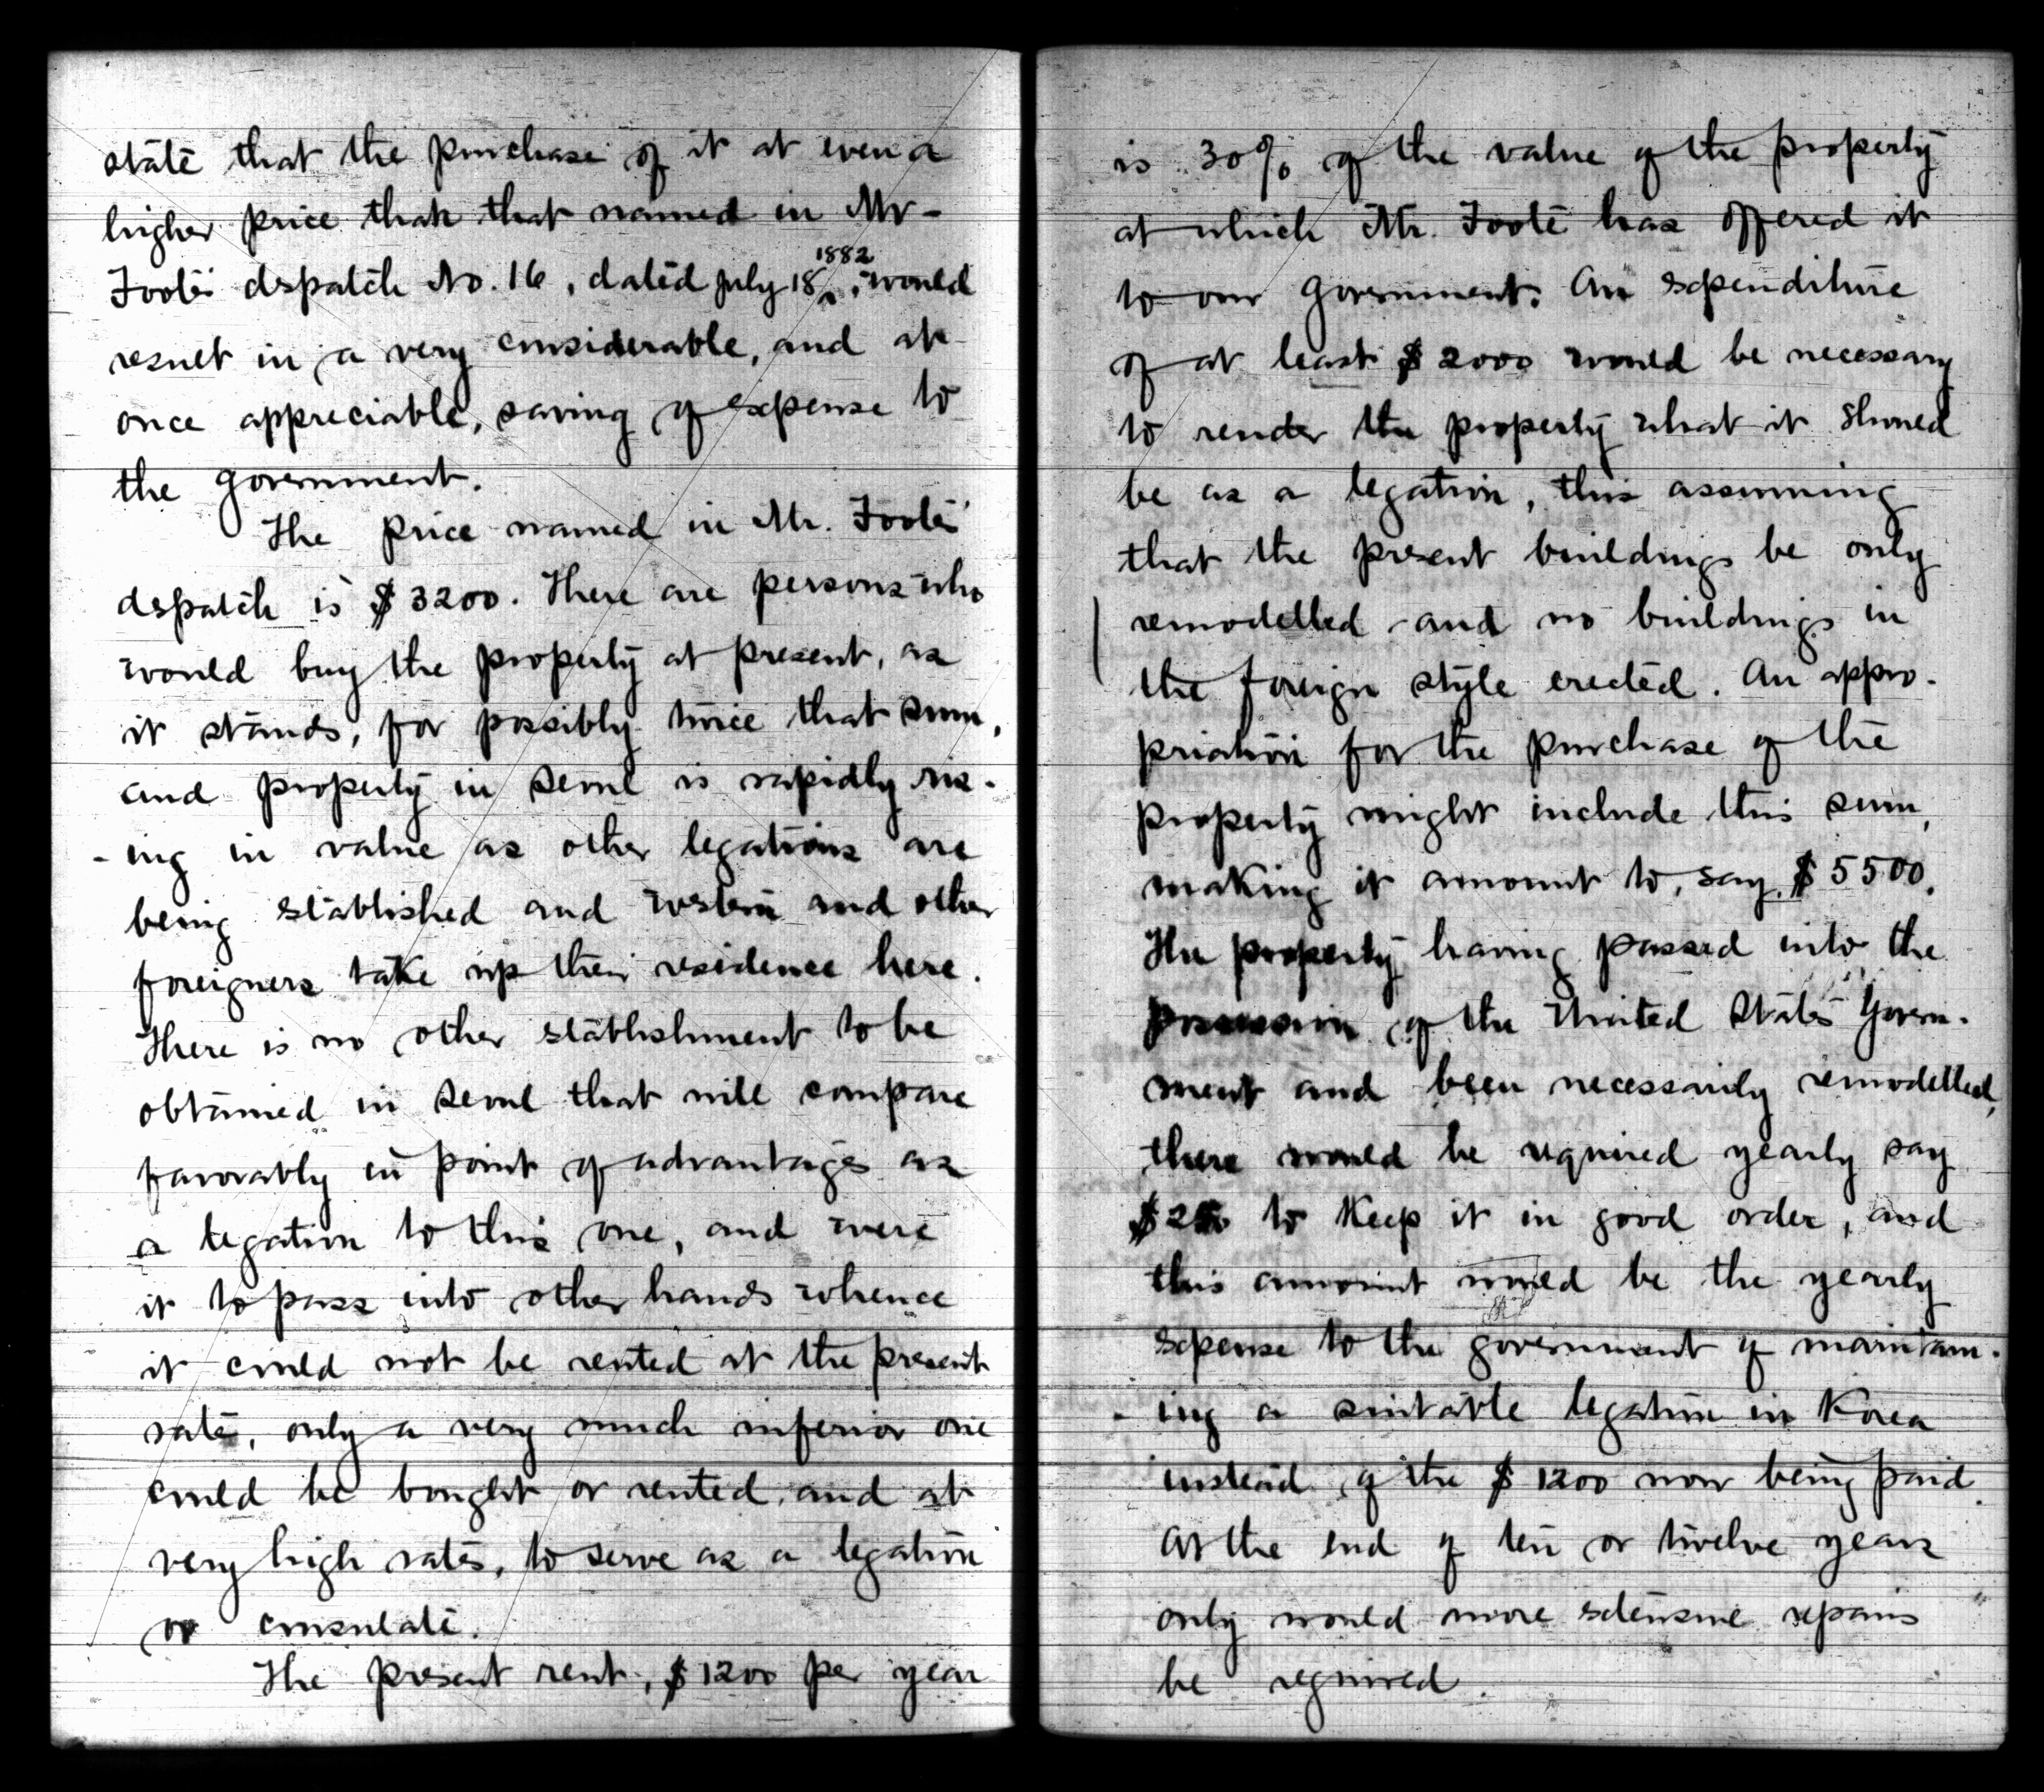 state that the purchase of it at even a
higher price than that named in Mr.
Foote's dispatch No. 16, dated July 18, 1882, would
result in a very considerable, and at
once appreciable, saving of expense to
the government.
The price named in Mr. Foote's
dispatch is $3200. There are persons who
would buy the property at present, as
it stands, for possibly twice that sum,
and property in Seoul is rapidly ris-
-ing in value as other legations are
being established and western and other
foreigners take up their residence here.
There is no other establishment to be
obtained in Seoul that will compare
favorably in point of advantages as
a legation to this one, and were
it to pass into other hands whence
it could not be rented at the present
rate, only a very much inferior one
could be bought or rented, and at
very high rates, to serve as a legation
or consulate.
The present rent, $1200 per year
is 30% of the value of the property
at which Mr. Foote has offered it
to our government. An expenditure
of at least $2000 would be necessary
to render the property what it should
be as a legation, this assuming
that the present buildings be only
remodelled and no buildings in
the foreign style erected. An appro-
priation for the purchase of the
property might include this sum,
making it amount to, say, $5500.
The property having passed into the
possession of the United States Govern-
ment and been necessarily remodelled,
there would be required yearly say
$250 to keep it in good order, and
this amount would be the yearly
expense to the government of maintain-
-ing a suitable legation in Korea
instead of the $1200 now being paid.
At the end of ten or twelve years
only would more extensive repairs
be required.